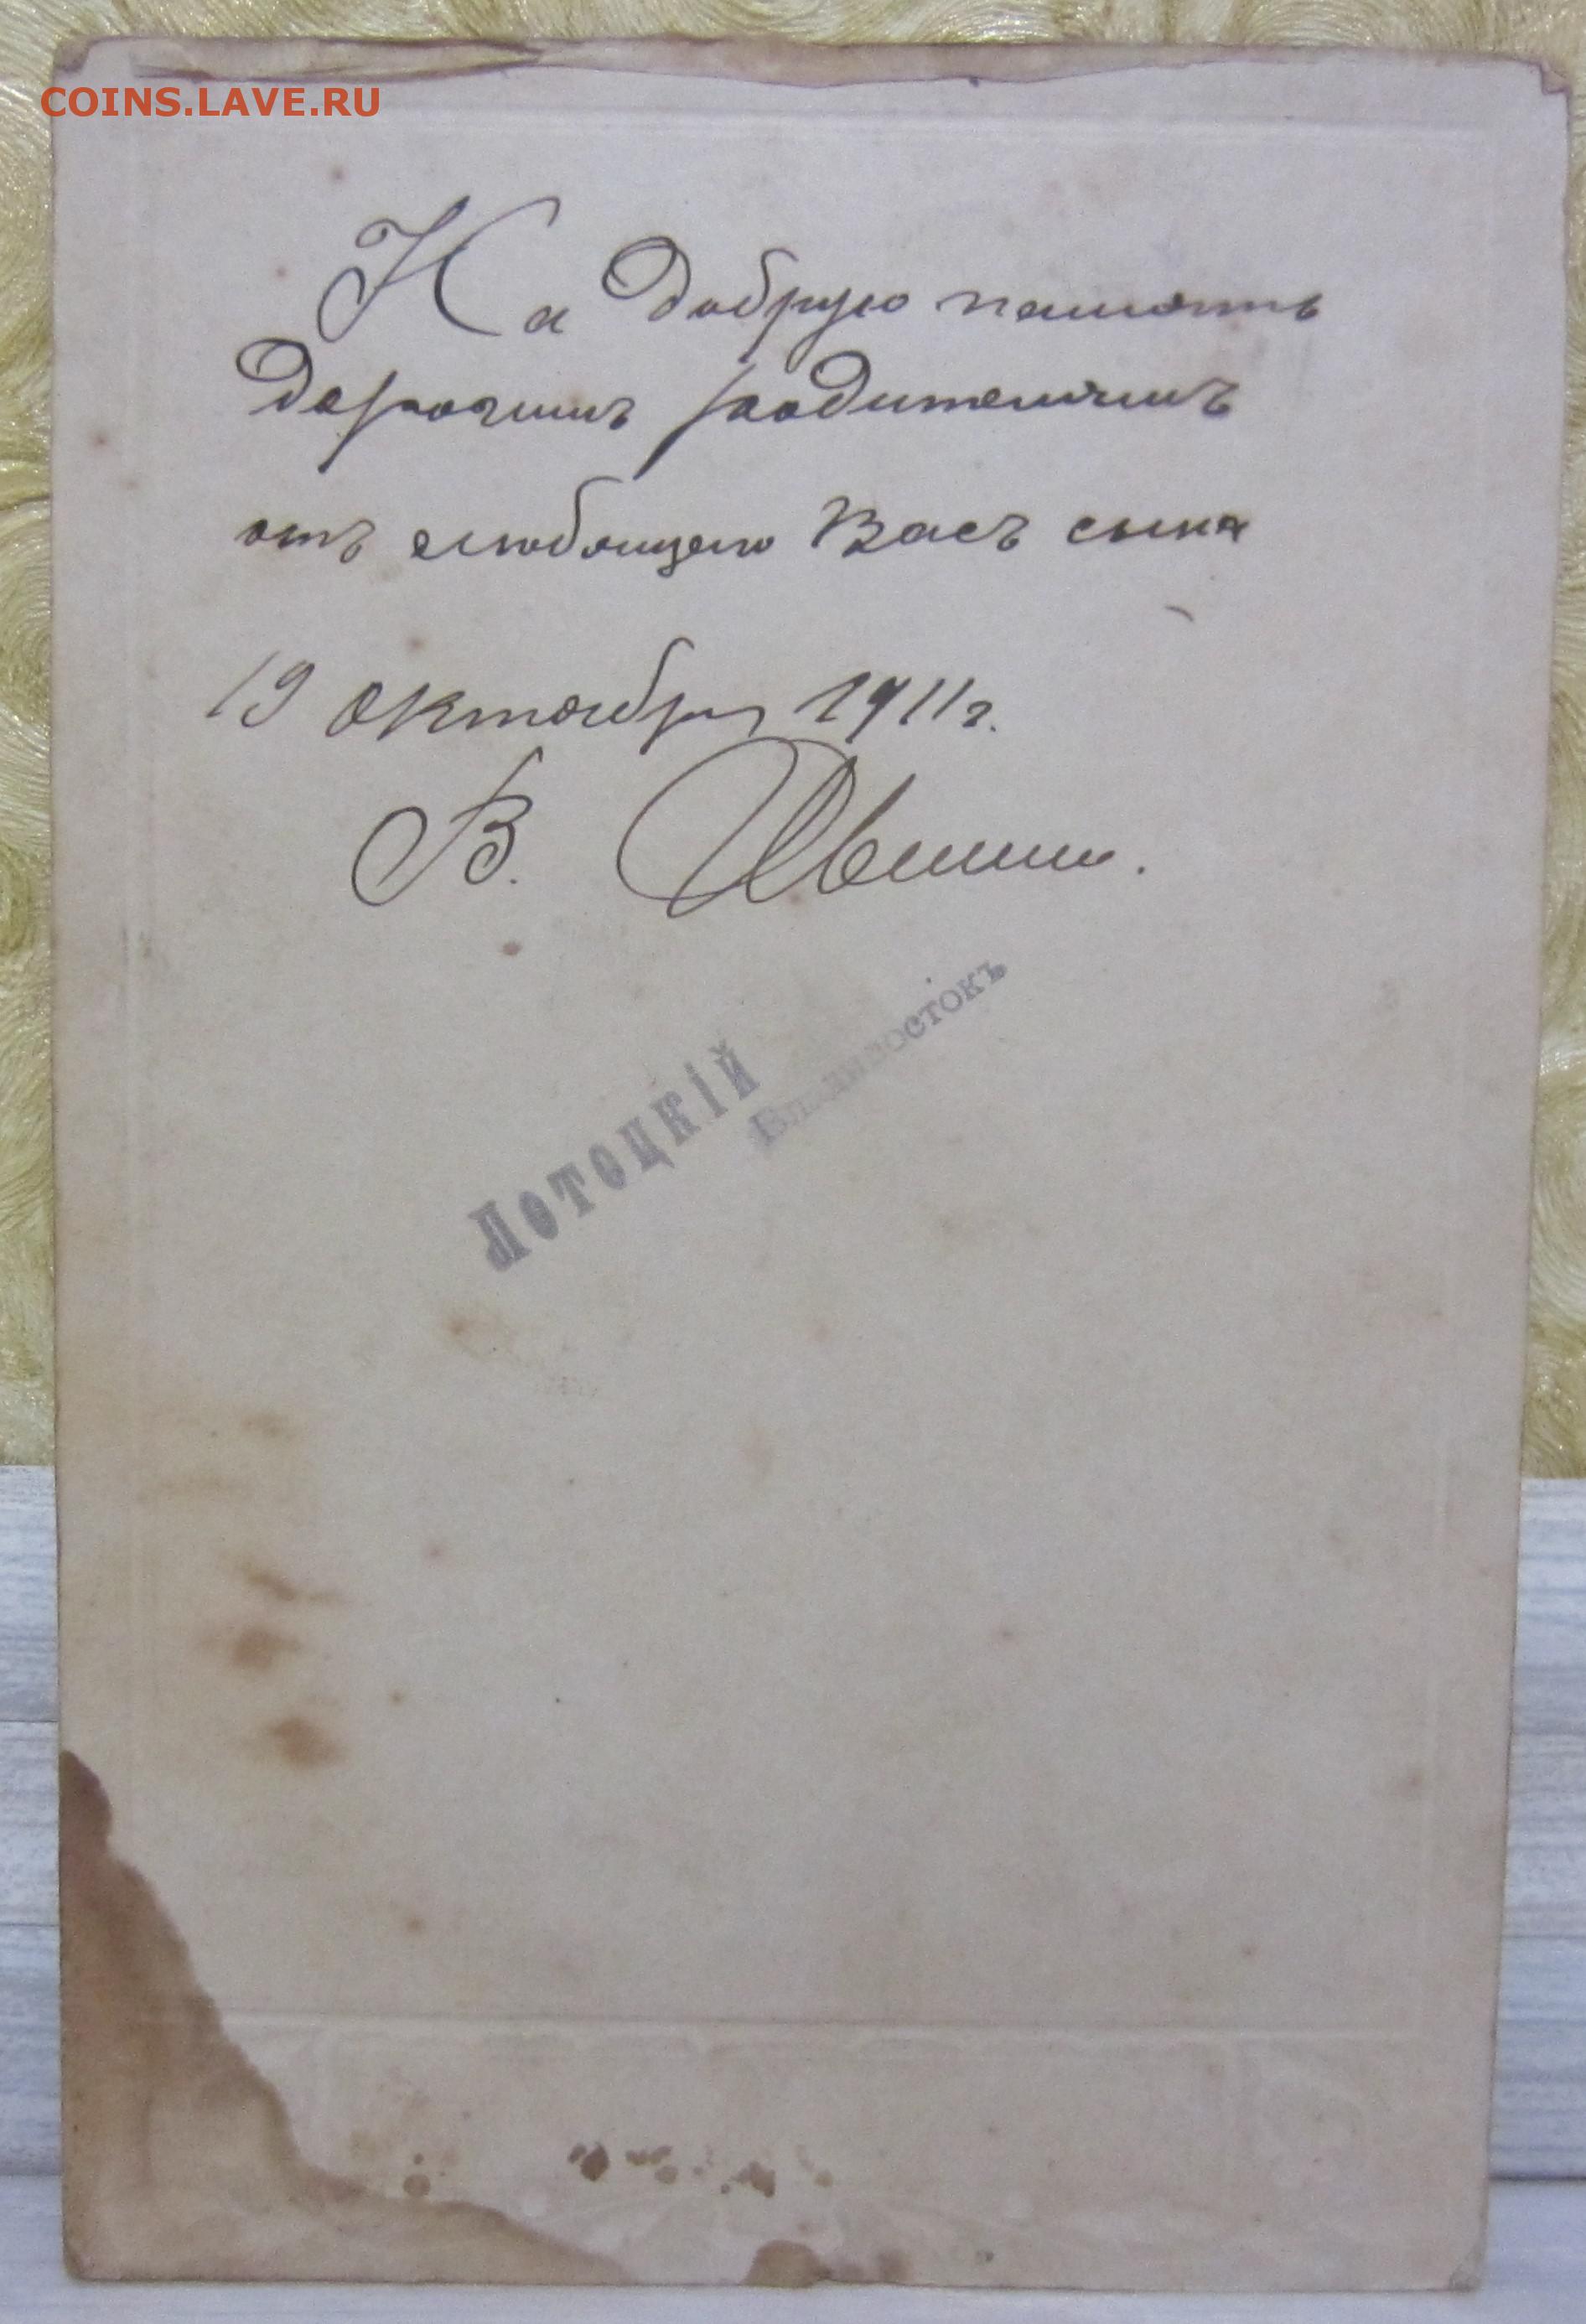 COINS.LAVE.RU
На добрую память
дорогимъ родителямъ
отъ любящего Васъ сына
19 октября 1911 г.
В.
Лотоцкій
Владивостокъ